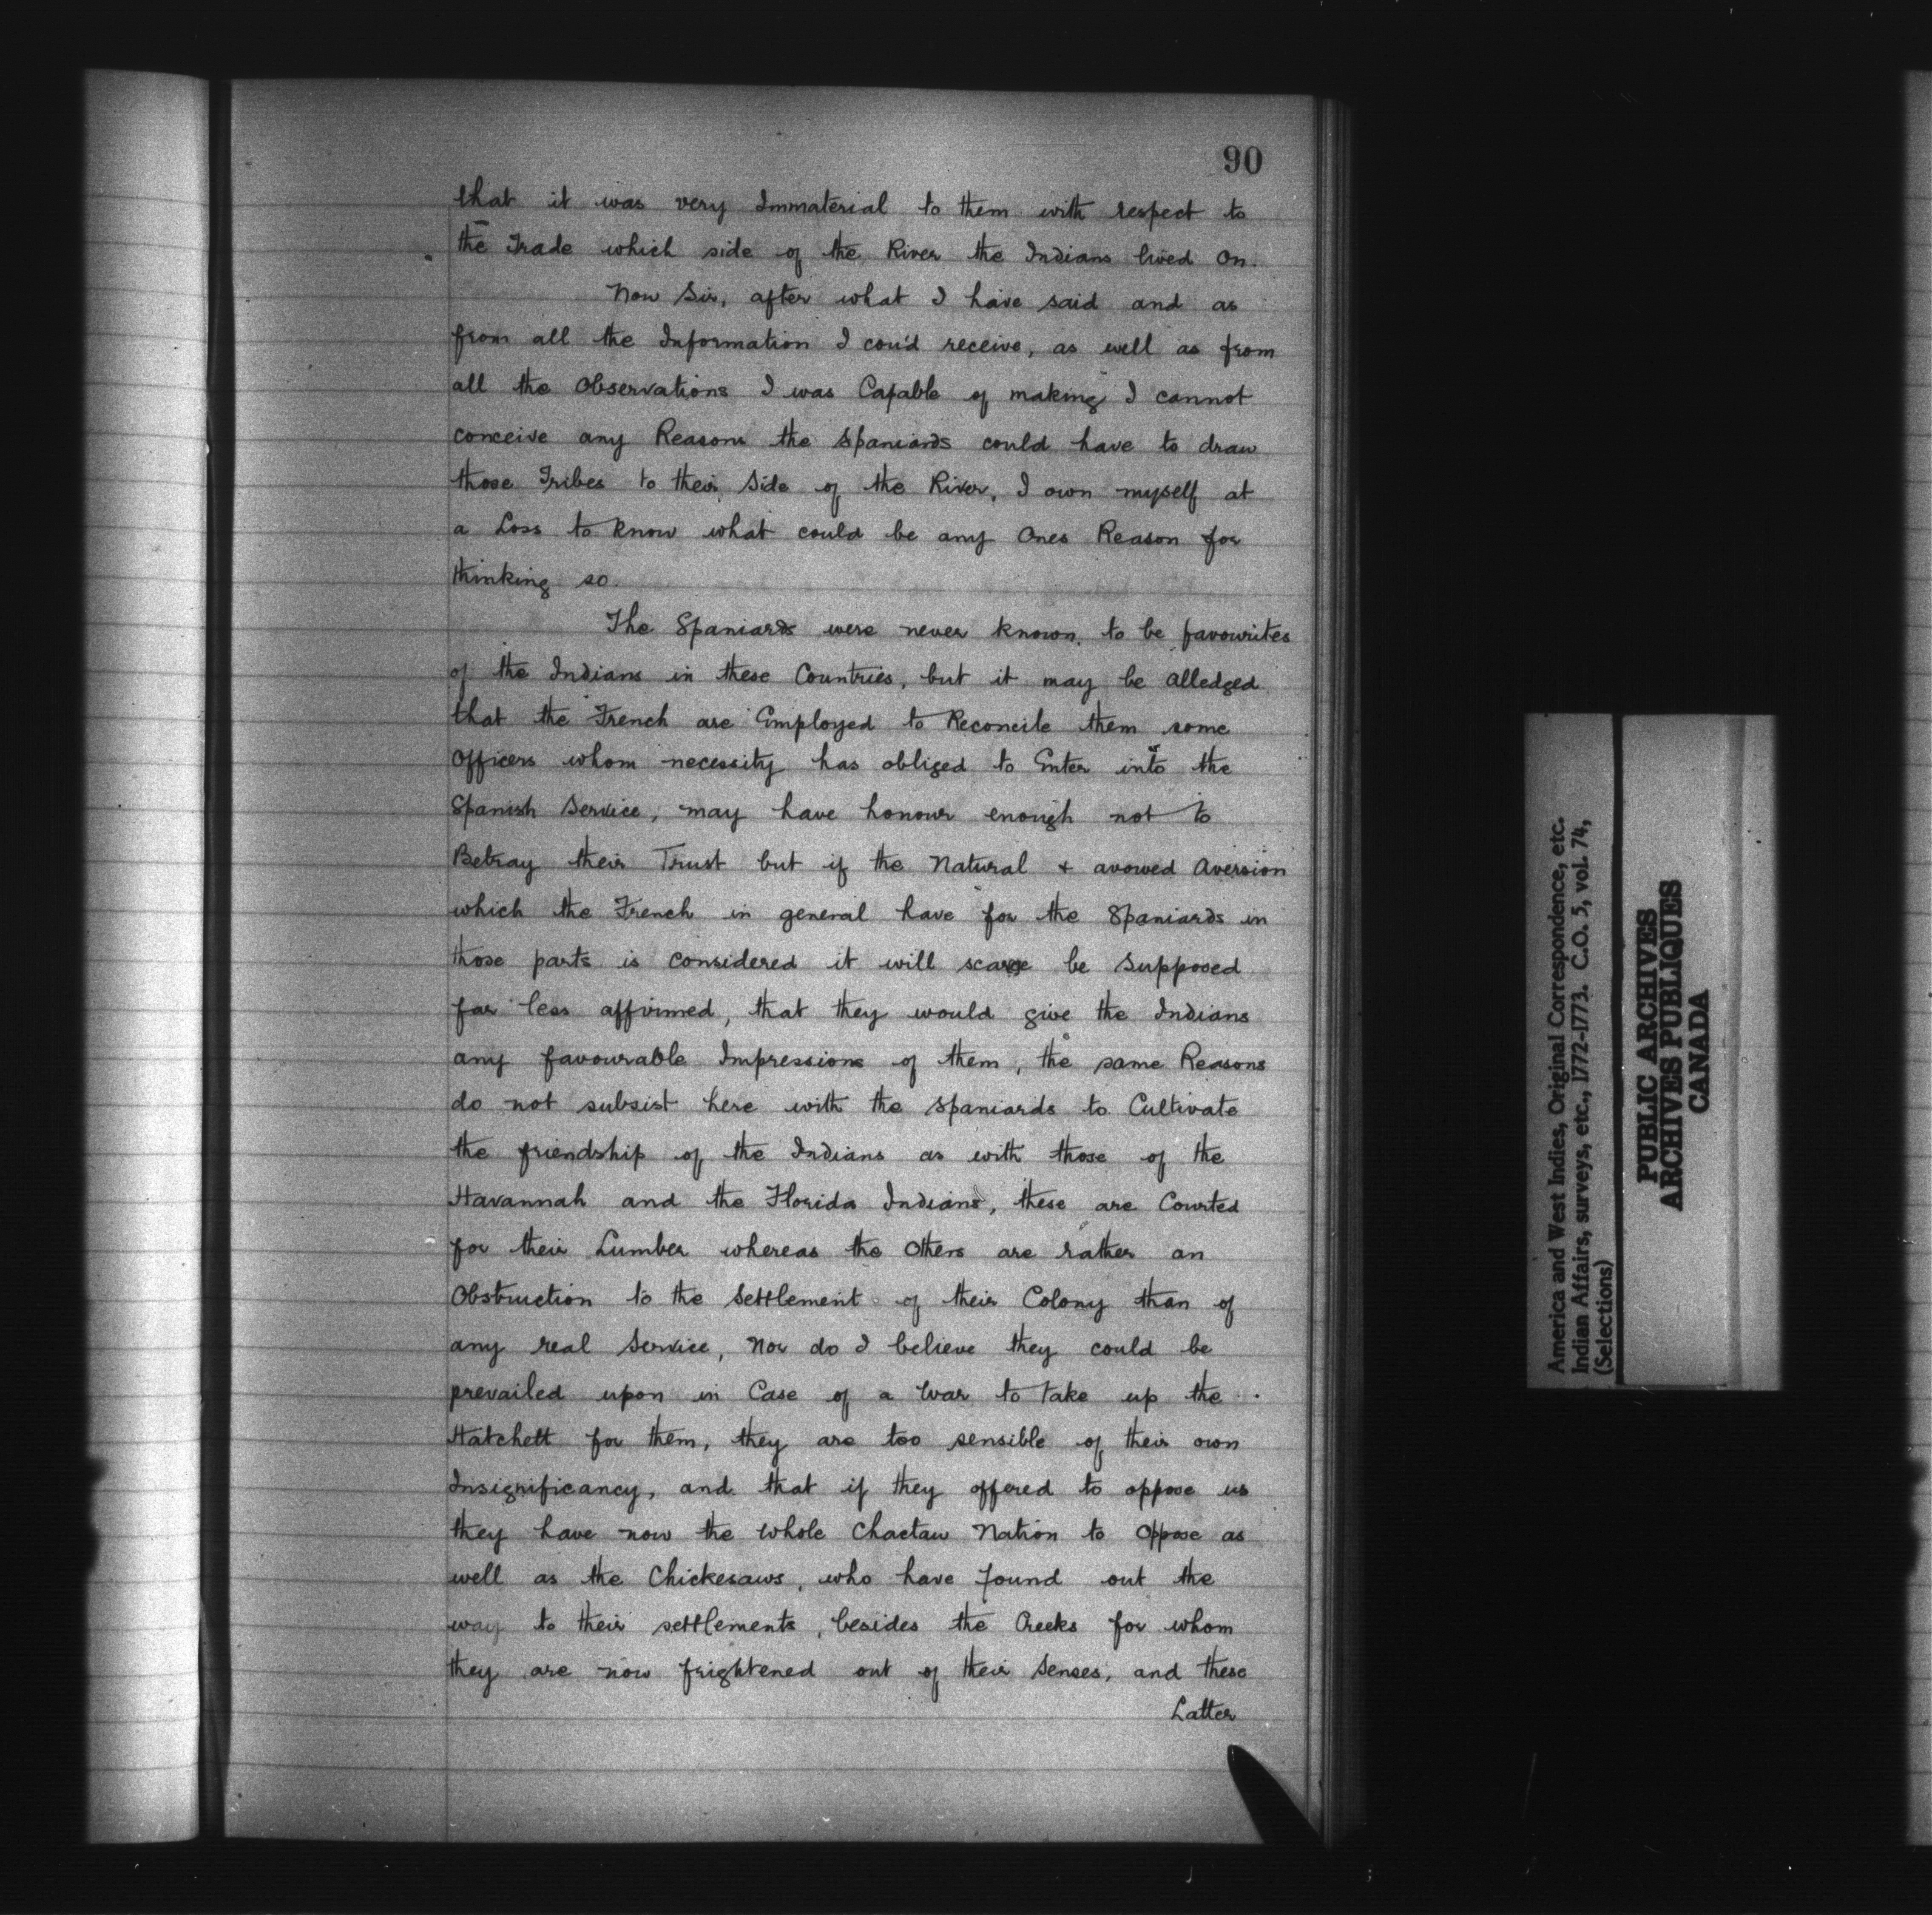 90
that it was very Immaterial to them with respect to
the Trade which side of the River the Indians lived on.
Now Sir, after what I have said and as
from all the Information I cou'd receive, as well as from
all the Observations I was Capable of making I cannot
conceive any Reasons the Spaniards could have to draw
those Tribes to their Side of the River, I own myself at
a Loss to know what could be any Ones Reason for
thinking so.
The Spaniards were never known to be favourites
of the Indians in these Countries, but it may be alledged
that the French are Employed to Reconcile them some
Officers whom necessity has obliged to Enter into the
Spanish Service, may have honour enough not to
Betray their Trust but if the Natural & avowed Aversion
which the French in general have for the Spaniards in
those parts is considered it will scarce be supposed
far less affirmed, that they would give the Indians
any favourable Impressions of them, the same Reasons
do not subsist here with the Spaniards to Cultivate
the friendship of the Indians as with those of the
Havannah and the Florida Indians, these are Courted
for their Lumber whereas the Others are rather an
Obstruction to the Settlement of their Colony than of
any real Service, Nor do I believe they could be
prevailed upon in Case of a War to take up the
Hatchett for them, they are too sensible of their own
Insignificancy, and that if they offered to oppose us
they have now the whole Chactaw Nation to Oppose as
well as the Chickesaws, who have found out the
way to their settlements, besides the Creeks for whom
they are now frightened out of their Senses, and these
Latter
America and West Indies, Original Correspondence, etc.
Indian Affairs, surveys, etc., 1772-1773. C.O. 5, vol. 74,
(Selections)
PUBLIC ARCHIVES
ARCHIVES PUBLIQUES
CANADA